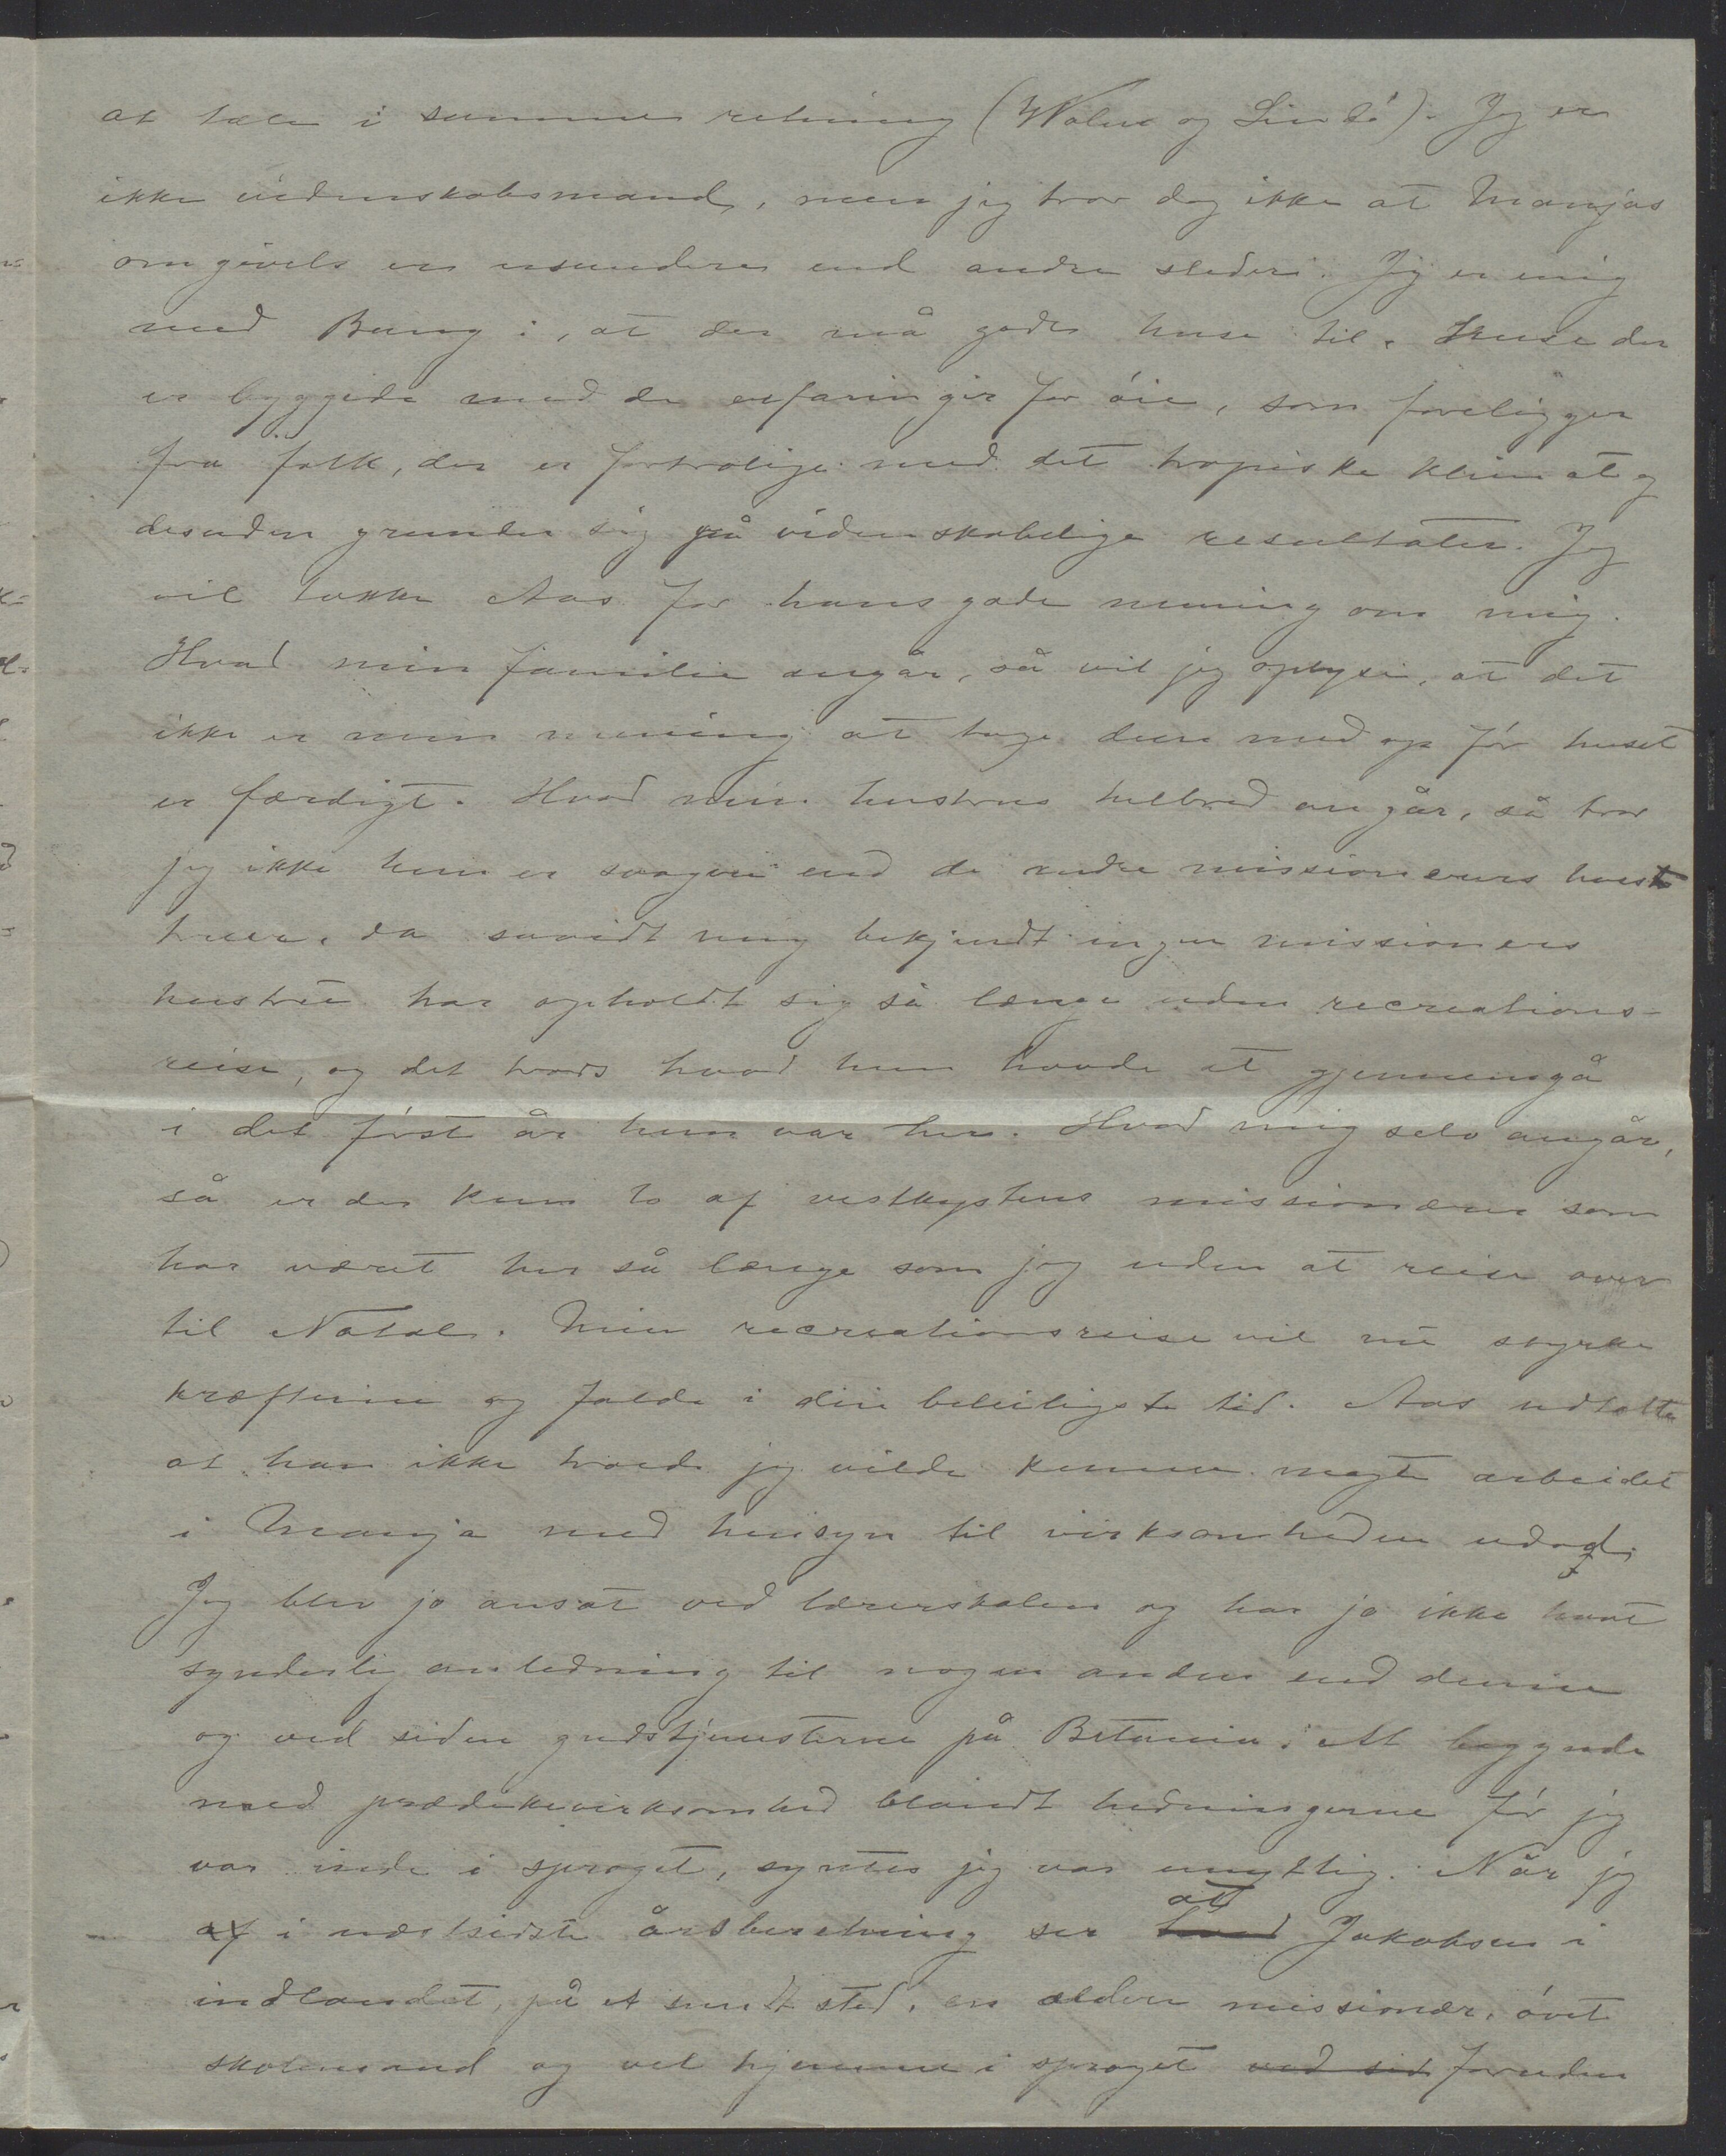 at tale i samme retning (Walen og Lindö). Jeg er
ikke videnskabsmand, men jeg tror dog ikke at Manjas
omgivels er usundere end andre steder. Jeg er enig
med Bang i, at der må gode huse til. Huse der
er byggede med de erfaringer for öie, som foreligger
fra folk, der er fortrolige med det tropiske klimat og
desuden grunder sig på videnskabelige resultater. Jeg
vil takke Aas for hans gode mening om mig.
Hvad min familie angår, så vil jeg oplyse, at det
ikke er min mening at tage dem med op för huset
er færdigt. Hvad min hustrus helbred angår, så tror
jeg ikke hun er svagere end de andre missionærers hust
truer, da såvidt mig bekjendt ingen missionærs
hustru har opholdt sig så længe uden recreations-
reise, og det trods hvad hun havde at gjennemgå
i det först år hun var her. Hvad mig selv angår,
så er der kun to af vestkystens missionærer som
har været her så længe som jeg uden at reise over
til Natal. Min recreationsreise vil nu styrke
kræfterne og falde i din beleiligste tid. Aas udtalte
at han ikke troede jeg vilde kunne magte arbeidet
i Manja med hensyn til virksomheden udad.
Jeg blev jo ansat ved lærerskolen og har jo ikke havt
synderlig anledning til nogen anden end denne
og ved siden gudstjenesterne på Betania. At begynde
med prædikevirksomhed blandt hedningerne för jeg
var inde i sproget, syntes jeg var unyttig. Når jeg
af i næstsidste årsberetning ser hvad at Jakobsen i
indlandet, på et sundt sted, en ældre missionær, övet
skolemand og vel hjemme i sproget ved sid foruden